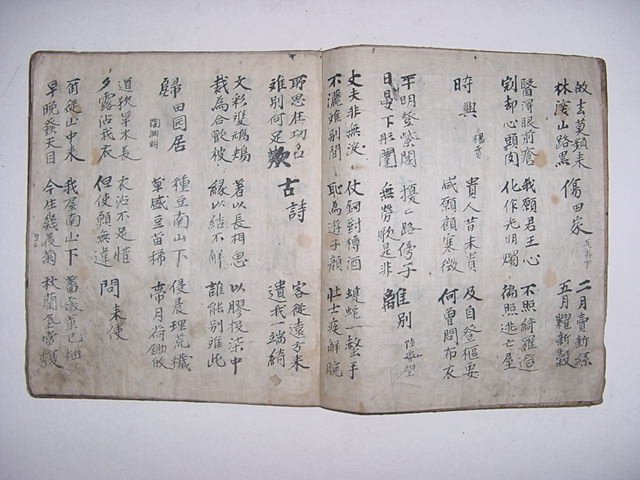 故去莫頻來
林深山路黑
傷田家 聶夷中
二月賣新絲
五月糶新穀
醫得眼前瘡 我願君王心 不照綺羅筵
剜却心頭肉 化作光明燭 徧照逃亡屋
時興 楊賁
貴人昔未貴 及自登樞要
咸願顧寒微 何曾問布衣
平明登紫閣 擾〻路傍子
日晏下彤闈 無勞歌是非
離別 陸龜蒙
丈夫非無淚 仗釼對樽酒 蝮蛇一螫手
不灑離別間 恥為游子顏 壯士疾解腕
所思在功名
離別何足歎
古詩
客從遠方來
遺我一端綺
文彩雙鴛鴦 著以長相思 以膠投柒中
裁為合歡被 緣以結不解 誰能別離此
歸田園居 陶淵明
種豆南山下 侵晨理荒穢
草盛豆苗稀 帶月荷鋤歸
道狹草木長 衣沾不足惜
夕露沾我衣 但使願無違
問來使
爾從山中來 我屋南山下 薔薇葉已抽
早晚發天目 今生幾叢菊 秋蘭氣當馥